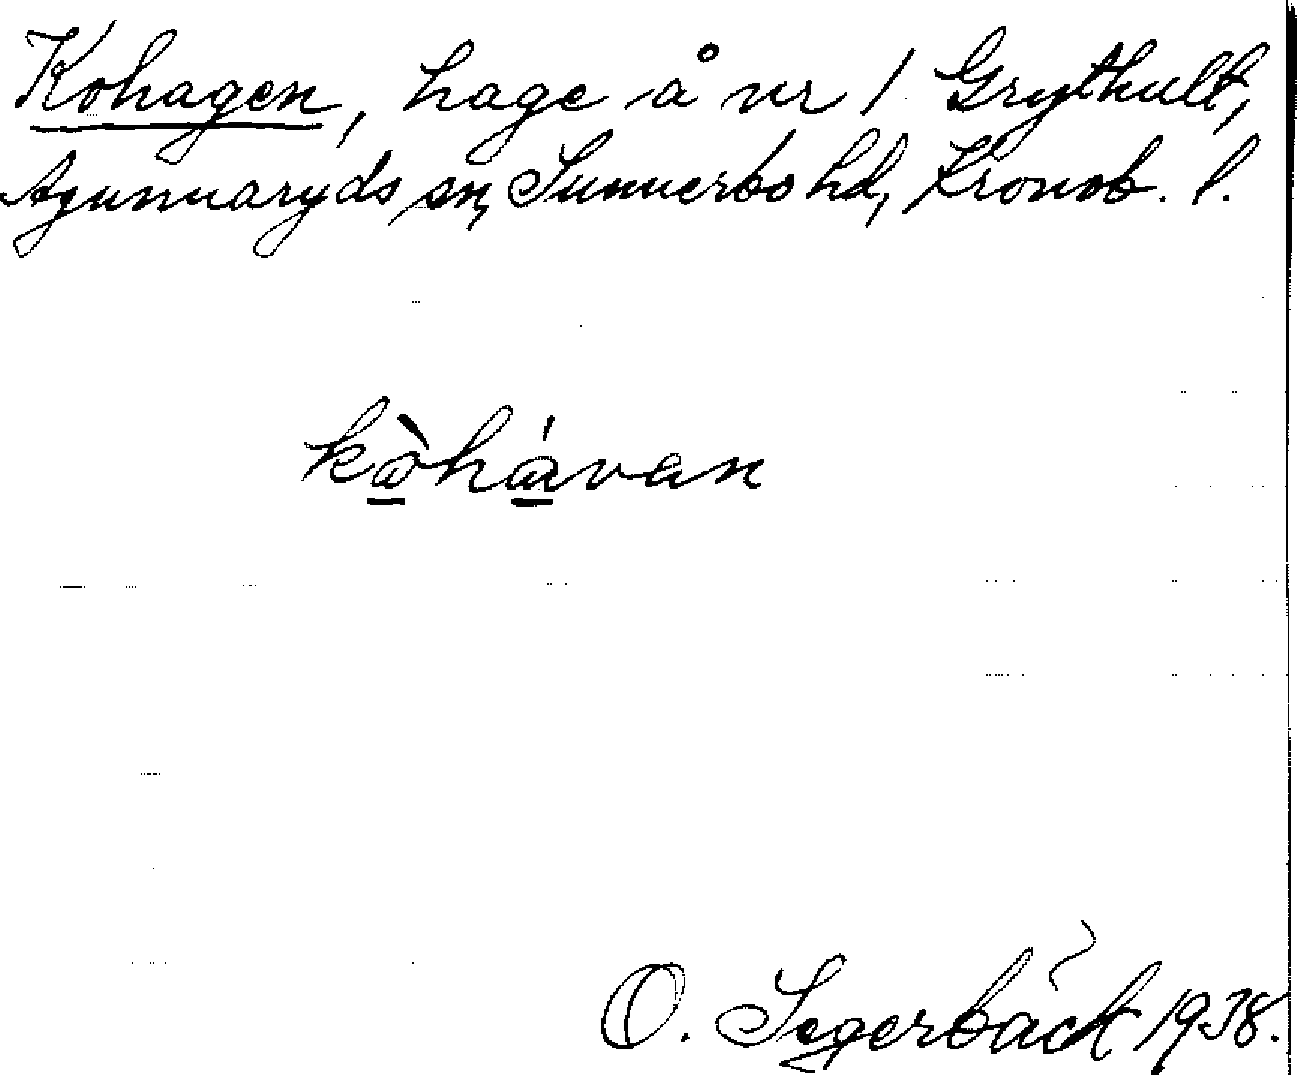 Kohagen, hage å nr 1 Grythult,
Agunnaryds sn, Sunnerbo hd, Kronob. l.
kòhávan
O. Segerbäck 1938.